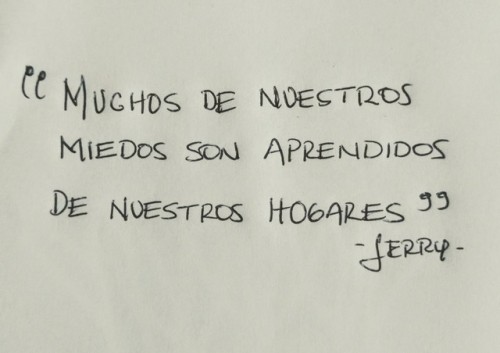 “MUCHOS DE NUESTROS
MIEDOS SON APRENDIDOS
DE NUESTROS HOGARES”
-JERRY-